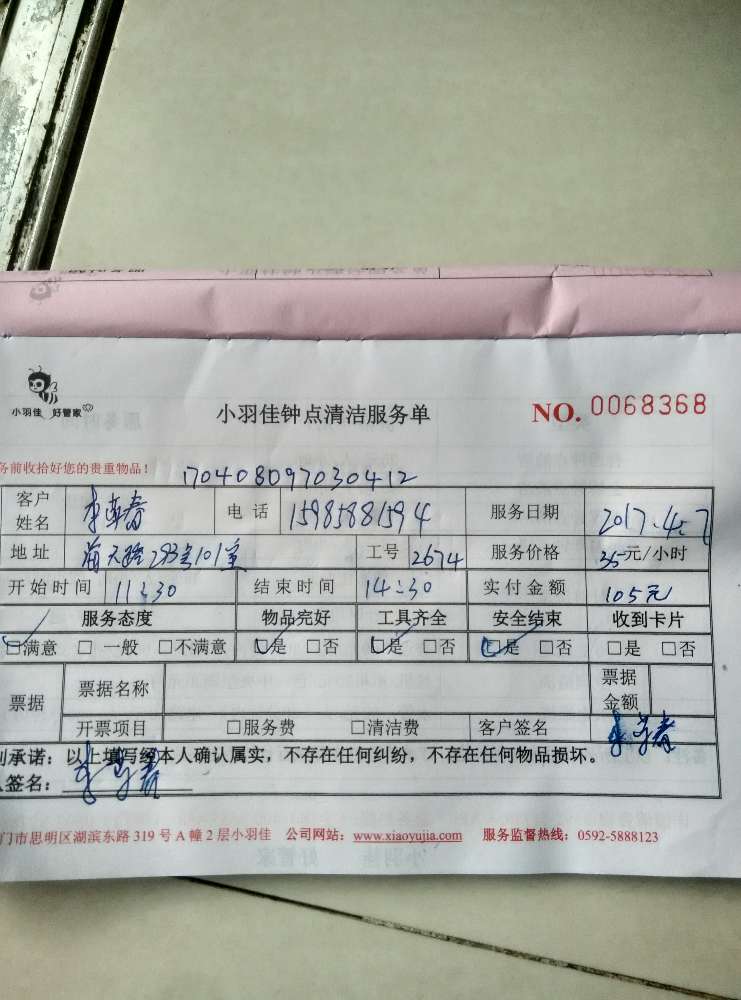 小羽佳 好管家
小羽佳钟点清洁服务单
NO. 0068368
务前收拾好您的贵重物品！
170408097030412
客户姓名 电话 15985881594 服务日期 2017.4.7
地址 工号 2674 服务价格 35元/小时
开始时间 11:30 结束时间 14:30 实付金额 105元
服务态度 物品完好 工具齐全 安全结束 收到卡片
☑满意 □一般 □不满意 ☑是 □否 ☑是 □否 ☑是 □否 □是 □否
票据 票据名称 票据金额
开票项目 □服务费 □清洁费 客户签名
承诺：以上填写经本人确认属实，不存在任何纠纷，不存在任何物品损坏。
签名：
门市思明区湖滨东路 319 号 A 幢 2 层小羽佳 公司网站：www.xiaoyujia.com 服务监督热线：0592-5888123